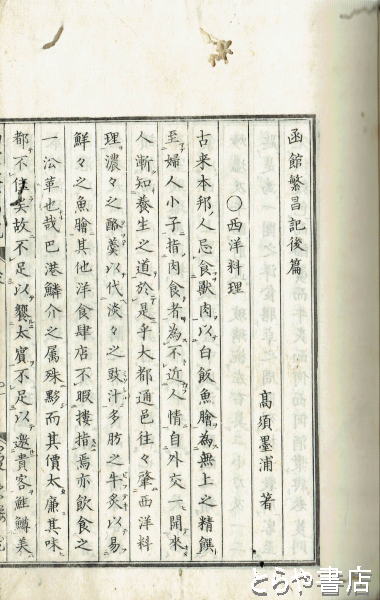 函館繁昌記後篇
髙須墨浦 著
〇西洋料理
古来本邦人忌食獣肉以白飯魚膾為無上之精饌
至婦人小子指肉食者為不近人情自外交一開来
人漸知養生之道於是乎大都通邑往々肇西洋料
理濃々之酪羹以代淡々之豉汁多肪之牛炙以易
鮮々之魚膾其他洋食肆店不暇摟指焉亦飲食之
一㳂革也哉巴港鱗介之属殊夥而其價太廉其味
都不佳矣故不足以饗太賓不足以邀貴客鮭鱒美
とらや書店